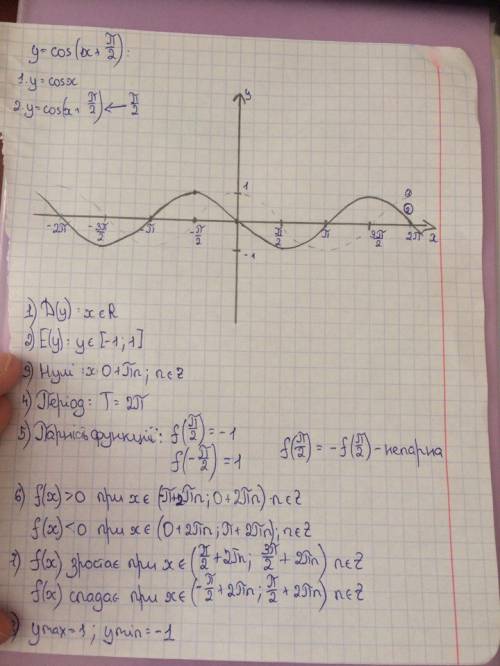 y=cos(x+π/2):
1. y=cosx
2. y=cos(x+π/2) ← π/2
y
1
-2π -3π/2 -π -π/2 π/2 π 3π/2 2π x
-1
1) D(y): x∈R
2) E(y): y∈[-1;1]
3) Нулі: x 0+πn; n∈Z
4) Період: T=2π
5) Парність функції: f(π/2)=-1
f(-π/2)=1 f(π/2)=-f(π/2)-непарна
6) f(x)>0 при x∈(π+2πn; 0+2πn) n∈Z
f(x)<0 при x∈(0+2πn; π+2πn); n∈Z
7) f(x) зростає при x∈(π/2+2πn; 3π/2+2πn) n∈Z
f(x) спадає при x∈(-π/2+2πn; π/2+2πn) n∈Z
ymax=1; ymin=-1